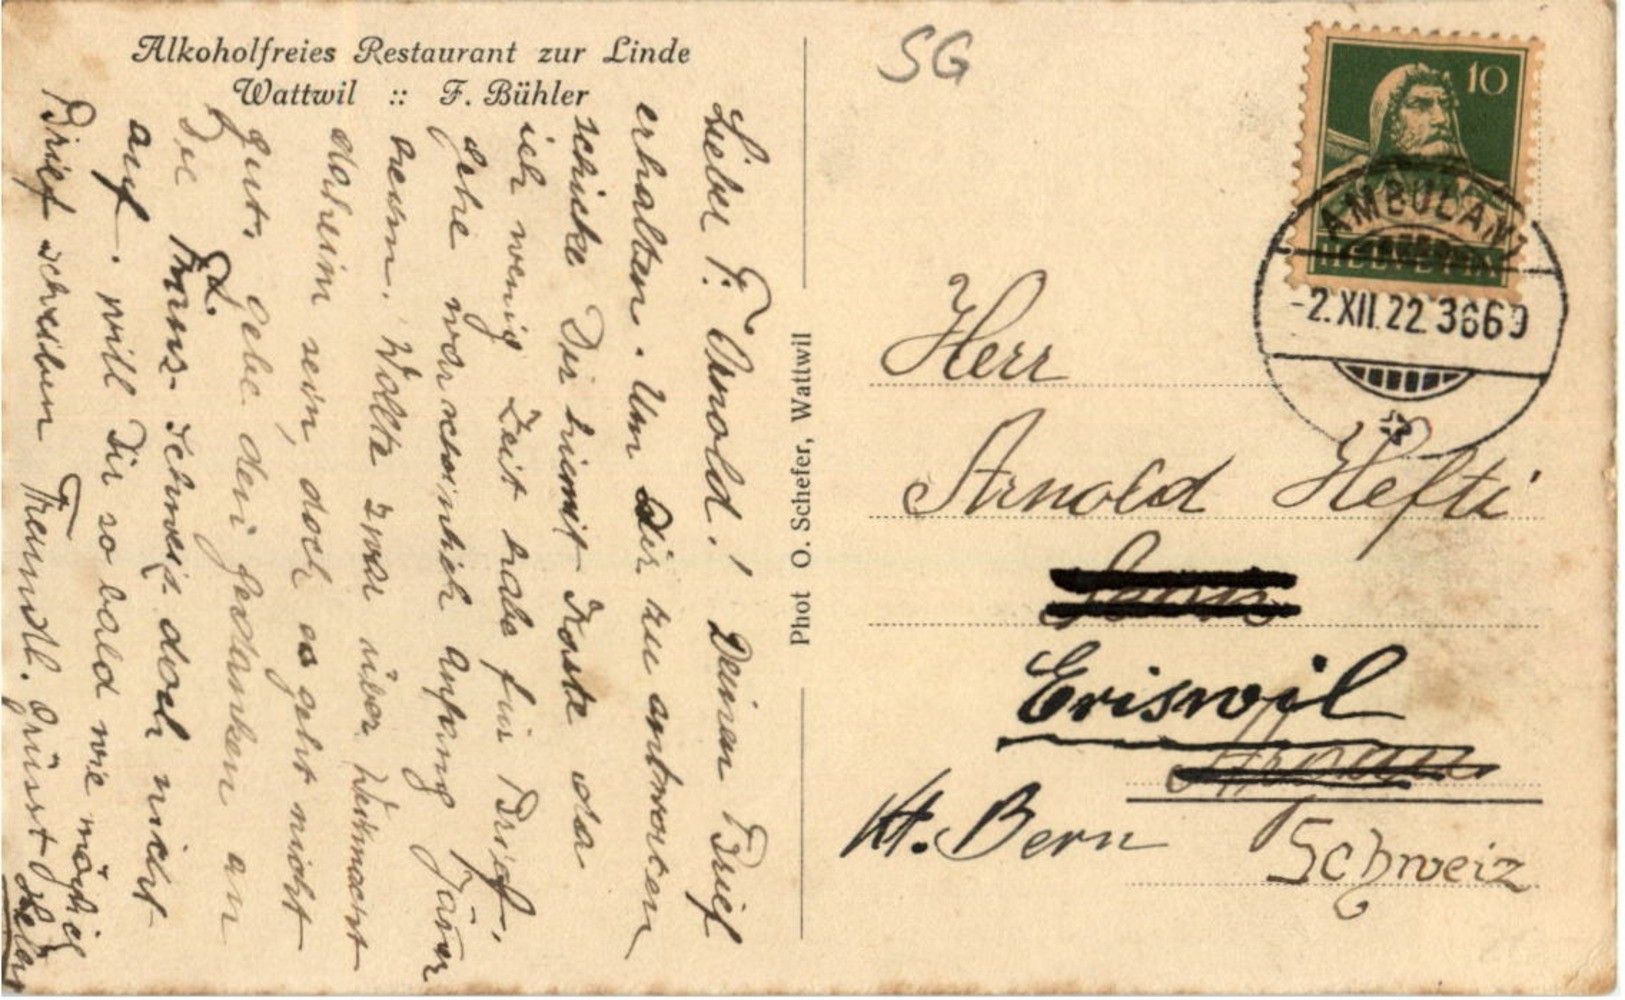 Alkoholfreies Restaurant zur Linde
Wattwil :: F. Bühler
Lieber F. Arnold! Deinen Brief
erhalten. Um Dir zu antworten
schicke Dir hiermit Karte da
ich wenig Zeit habe für Brief,
gehe worscheinlich anfang Jäner
Wollte zwar über Weihnacht
daheim sein, doch es geht nicht
gut, gebe den gedanken an
die Franz. Schweiz doch nicht
auf. will Dir so bald wie möglich
Brief schreiben Freundl. Grüsst
Phot O. Schefer, Wattwil
SG
10
HELVETIA
AMBULANT
-2.XII.22 3669
Herr
Arnold Hefti
Eriswil
Kt. Bern
Schweiz